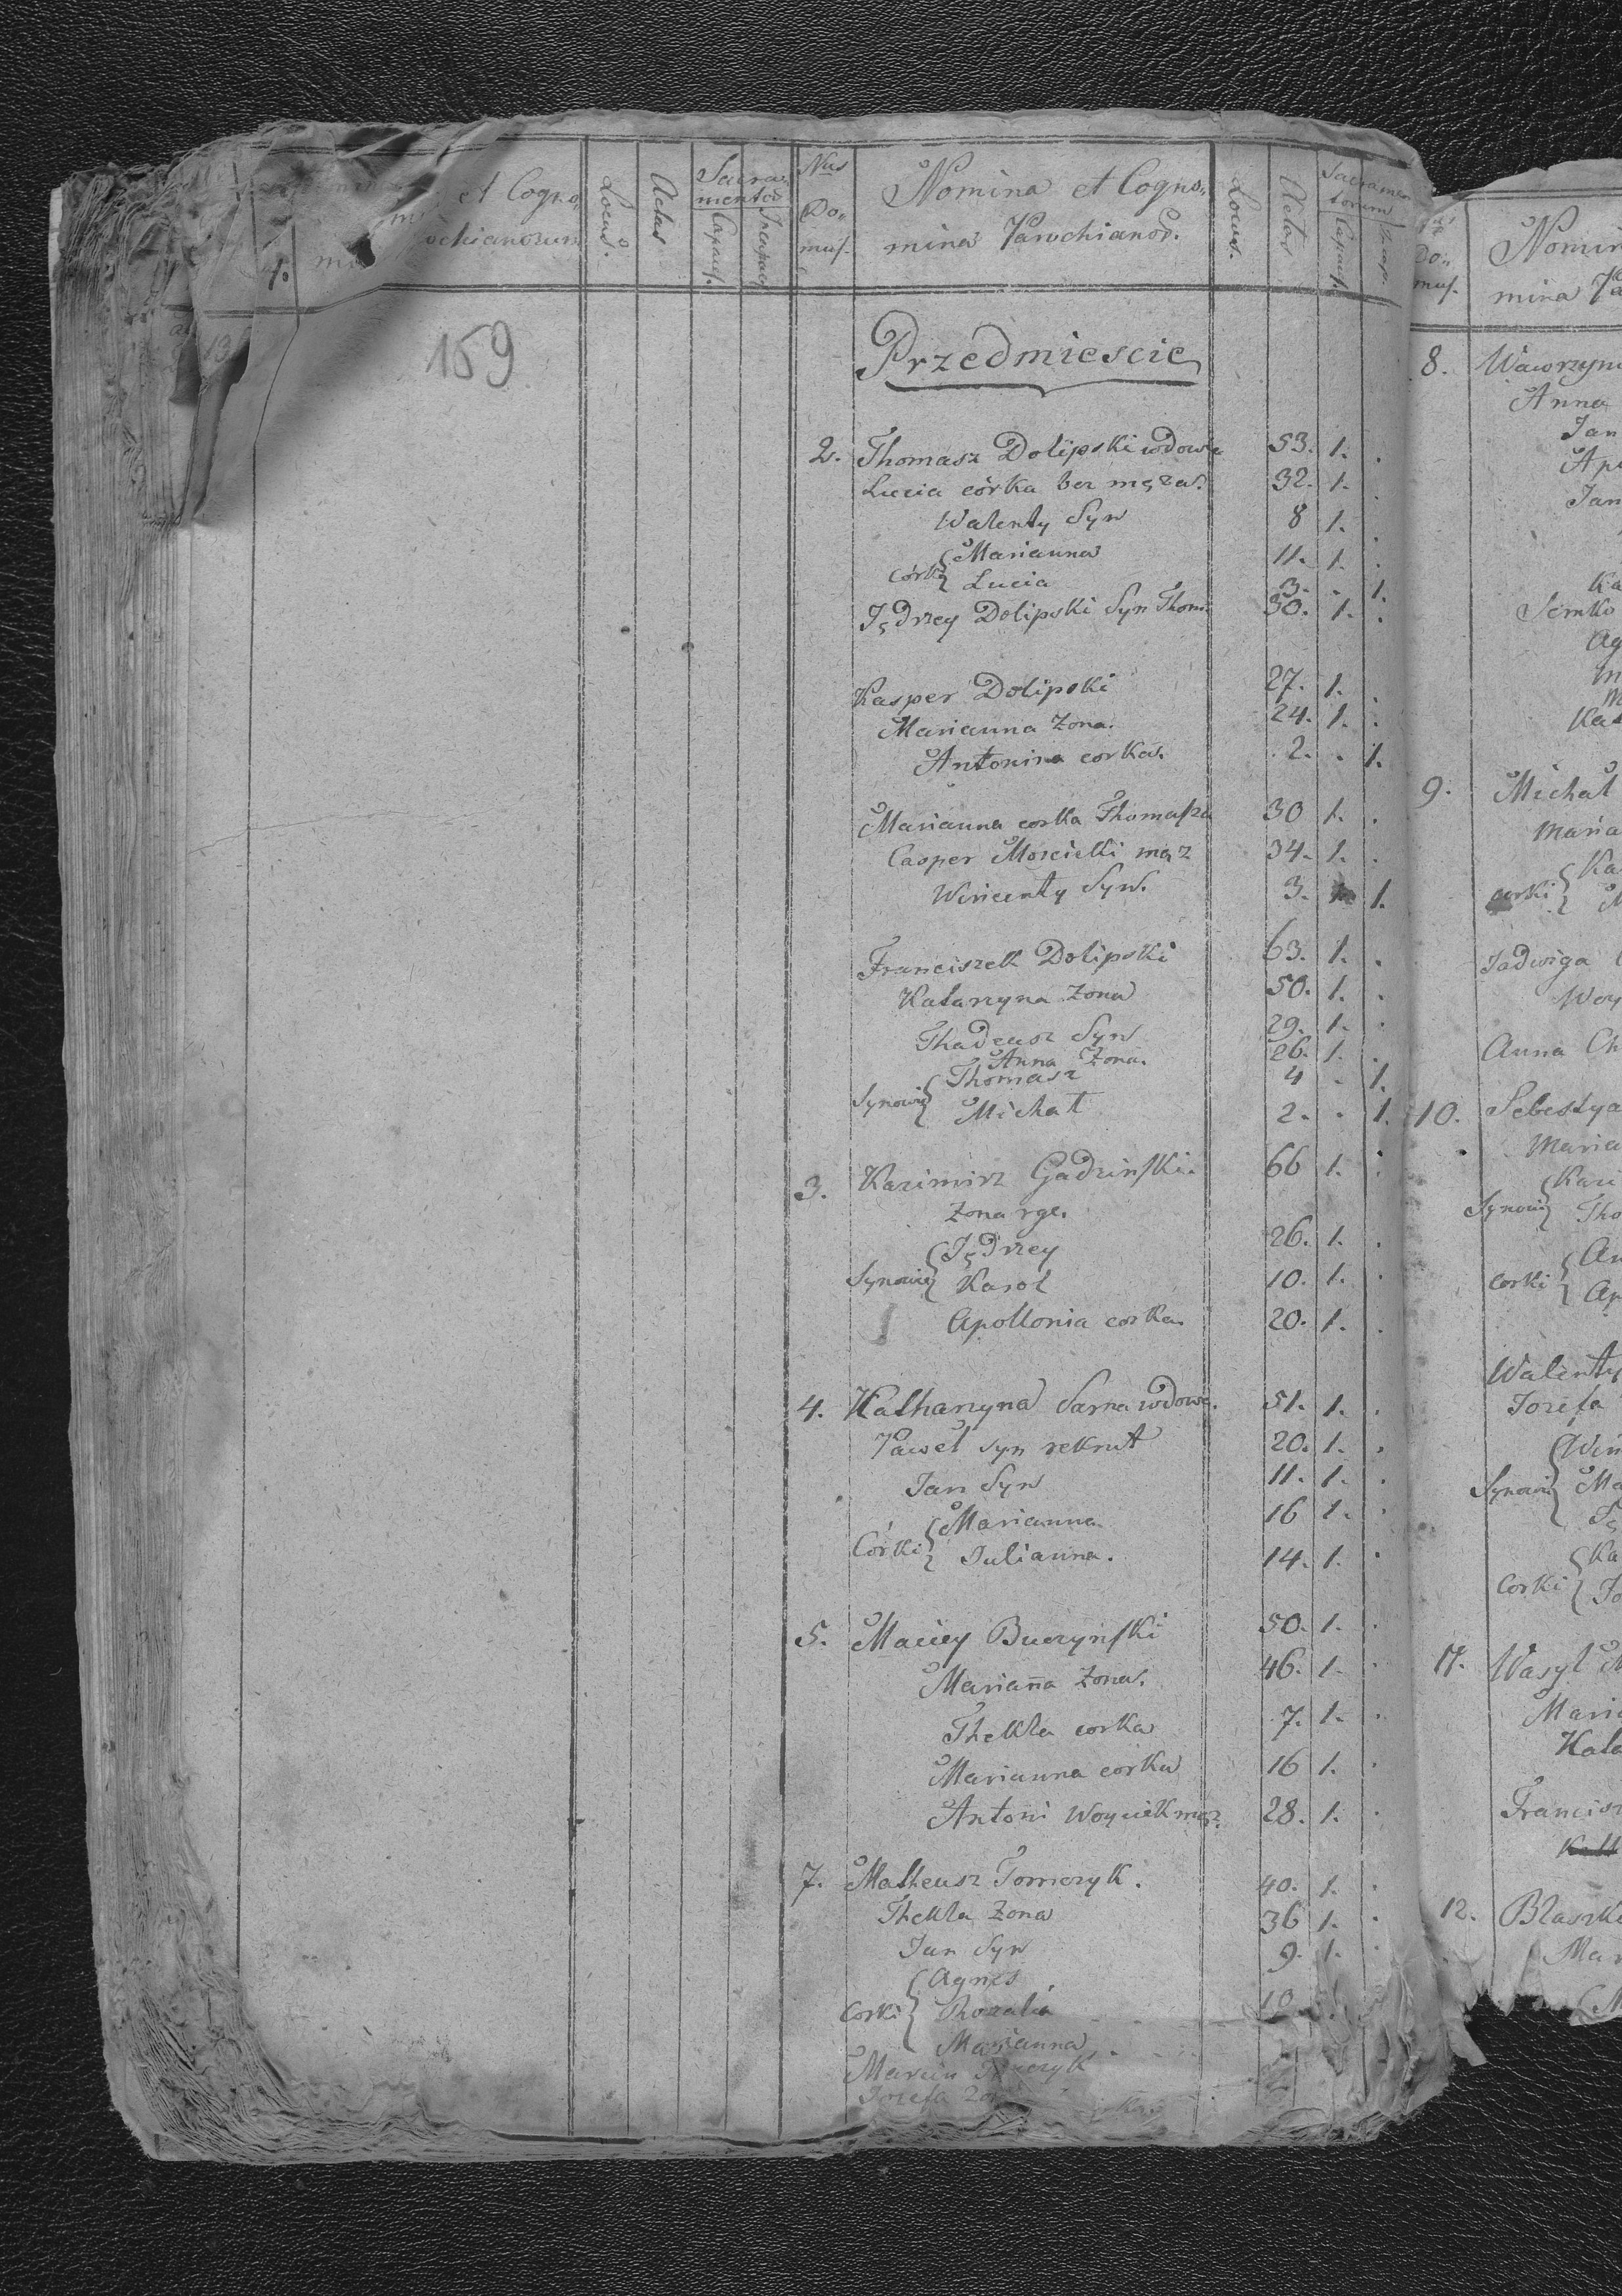 et Cogno,,
ochianorum
Locus.
Aetas
Sacra,,
mentor
Capaces.
Incapaces
Nus
Do,,
mus.
Nomina et Cogno,,
mina Parochianor.
Locus.
Aetas
Sacramen
torum
Capaces.
Incap.
Do,,
mus.
Nomin
mina Pa
159
Przedmiescie
2. Thomasz Dolipski wdowie 53. 1. .
Lucia córka bez męża. 32. 1. .
Walenty Syn 8 1. .
Córki { Marianna 11. 1. .
Lucia 3. . 1.
Jędrzey Dolipski Syn Thom. 30. 1. .
Kasper Dolipski 27. 1. .
Marianna Zona. 24. 1. .
Antonina corka. 2. . 1.
Marianna corka Thomasza 30 1. .
Casper Moscicki mąz 34. 1. .
Winicenty Syn. 3. 1.
Franciszek Dolipski 63. 1. .
Katarzyna Zona 50. 1. .
Thadeusz Syn 29. 1. .
Anna Zona. 26. 1. .
Synowie { Thomasz 4 . 1.
Michał 2. . 1.
3. Kazimirz Gadzinski. 66 1. .
Zona rge.
Synowie { Jędrzey 26. 1. .
Karol 10. 1. .
Apollonia corka. 20. 1. .
4. Katharzyna Sarna wdowa. 51. 1. .
Paweł syn rekrut 20. 1. .
Jan Syn 11. 1. .
Córki { Marianna 16 1. .
Julianna. 14. 1. .
5. Maciey Buczynski 50. 1. .
Marian̄a Zona. 46. 1. .
Thekla corka 7. 1. .
Marianna corka 16 1. .
Antoni Woyciek mąz. 28. 1. .
7. Matheusz Tomczyk. 40. 1. .
Thekla Zona 36 1. .
Jan Syn 9. 1. .
Corki { Agnes 10
Rozalia
Marianna
Marcin
Jozefa
8. Wawrzyn
Anna
Jan
Jan
Semko
9. Michał
Maria
corki { Ka
Jadwiga
Woy
Anna Ch
10. Sebestya
Maria
Synowie { Kazi
Tho
corki { An
Ap
Walenty
Jozefa
Synowie { Win
Ma
Corki { Ka
Jo
11. Wasyl
Maria
Kata
Francisz
12. Błaszko
Mar